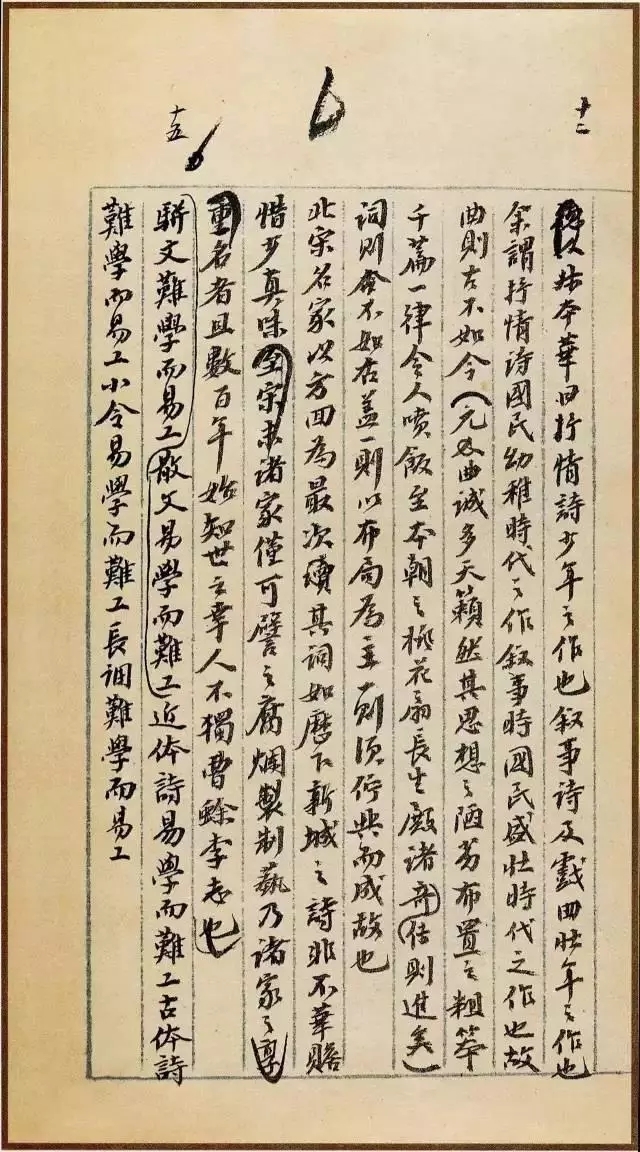 十二
叔本華曰抒情詩少年之作也叙事詩及戲曲壯年之作也
余謂抒情詩國民幼稚時代之作叙事時國民盛壯時代之作也故
曲則古不如今（元曲誠多天籟然其思想之陋劣布置之粗笨
千篇一律令人噴飯至本朝之桃花扇長生殿諸奇传則進矣）
詞則今不如古蓋一則以布局為主一則須佇興而成故也
北宋名家以方回為最次續其詞如歷下新城之詩非不華贍
惜少真味至宋末諸家僅可譬之腐爛製制藝乃諸家之享
重名者且數百年始知世之幸人不獨曹蜍李志也
十五
駢文難學而易工散文易學而難工近体詩易學而難工古体詩
難學而易工小令易學而難工長調難學而易工